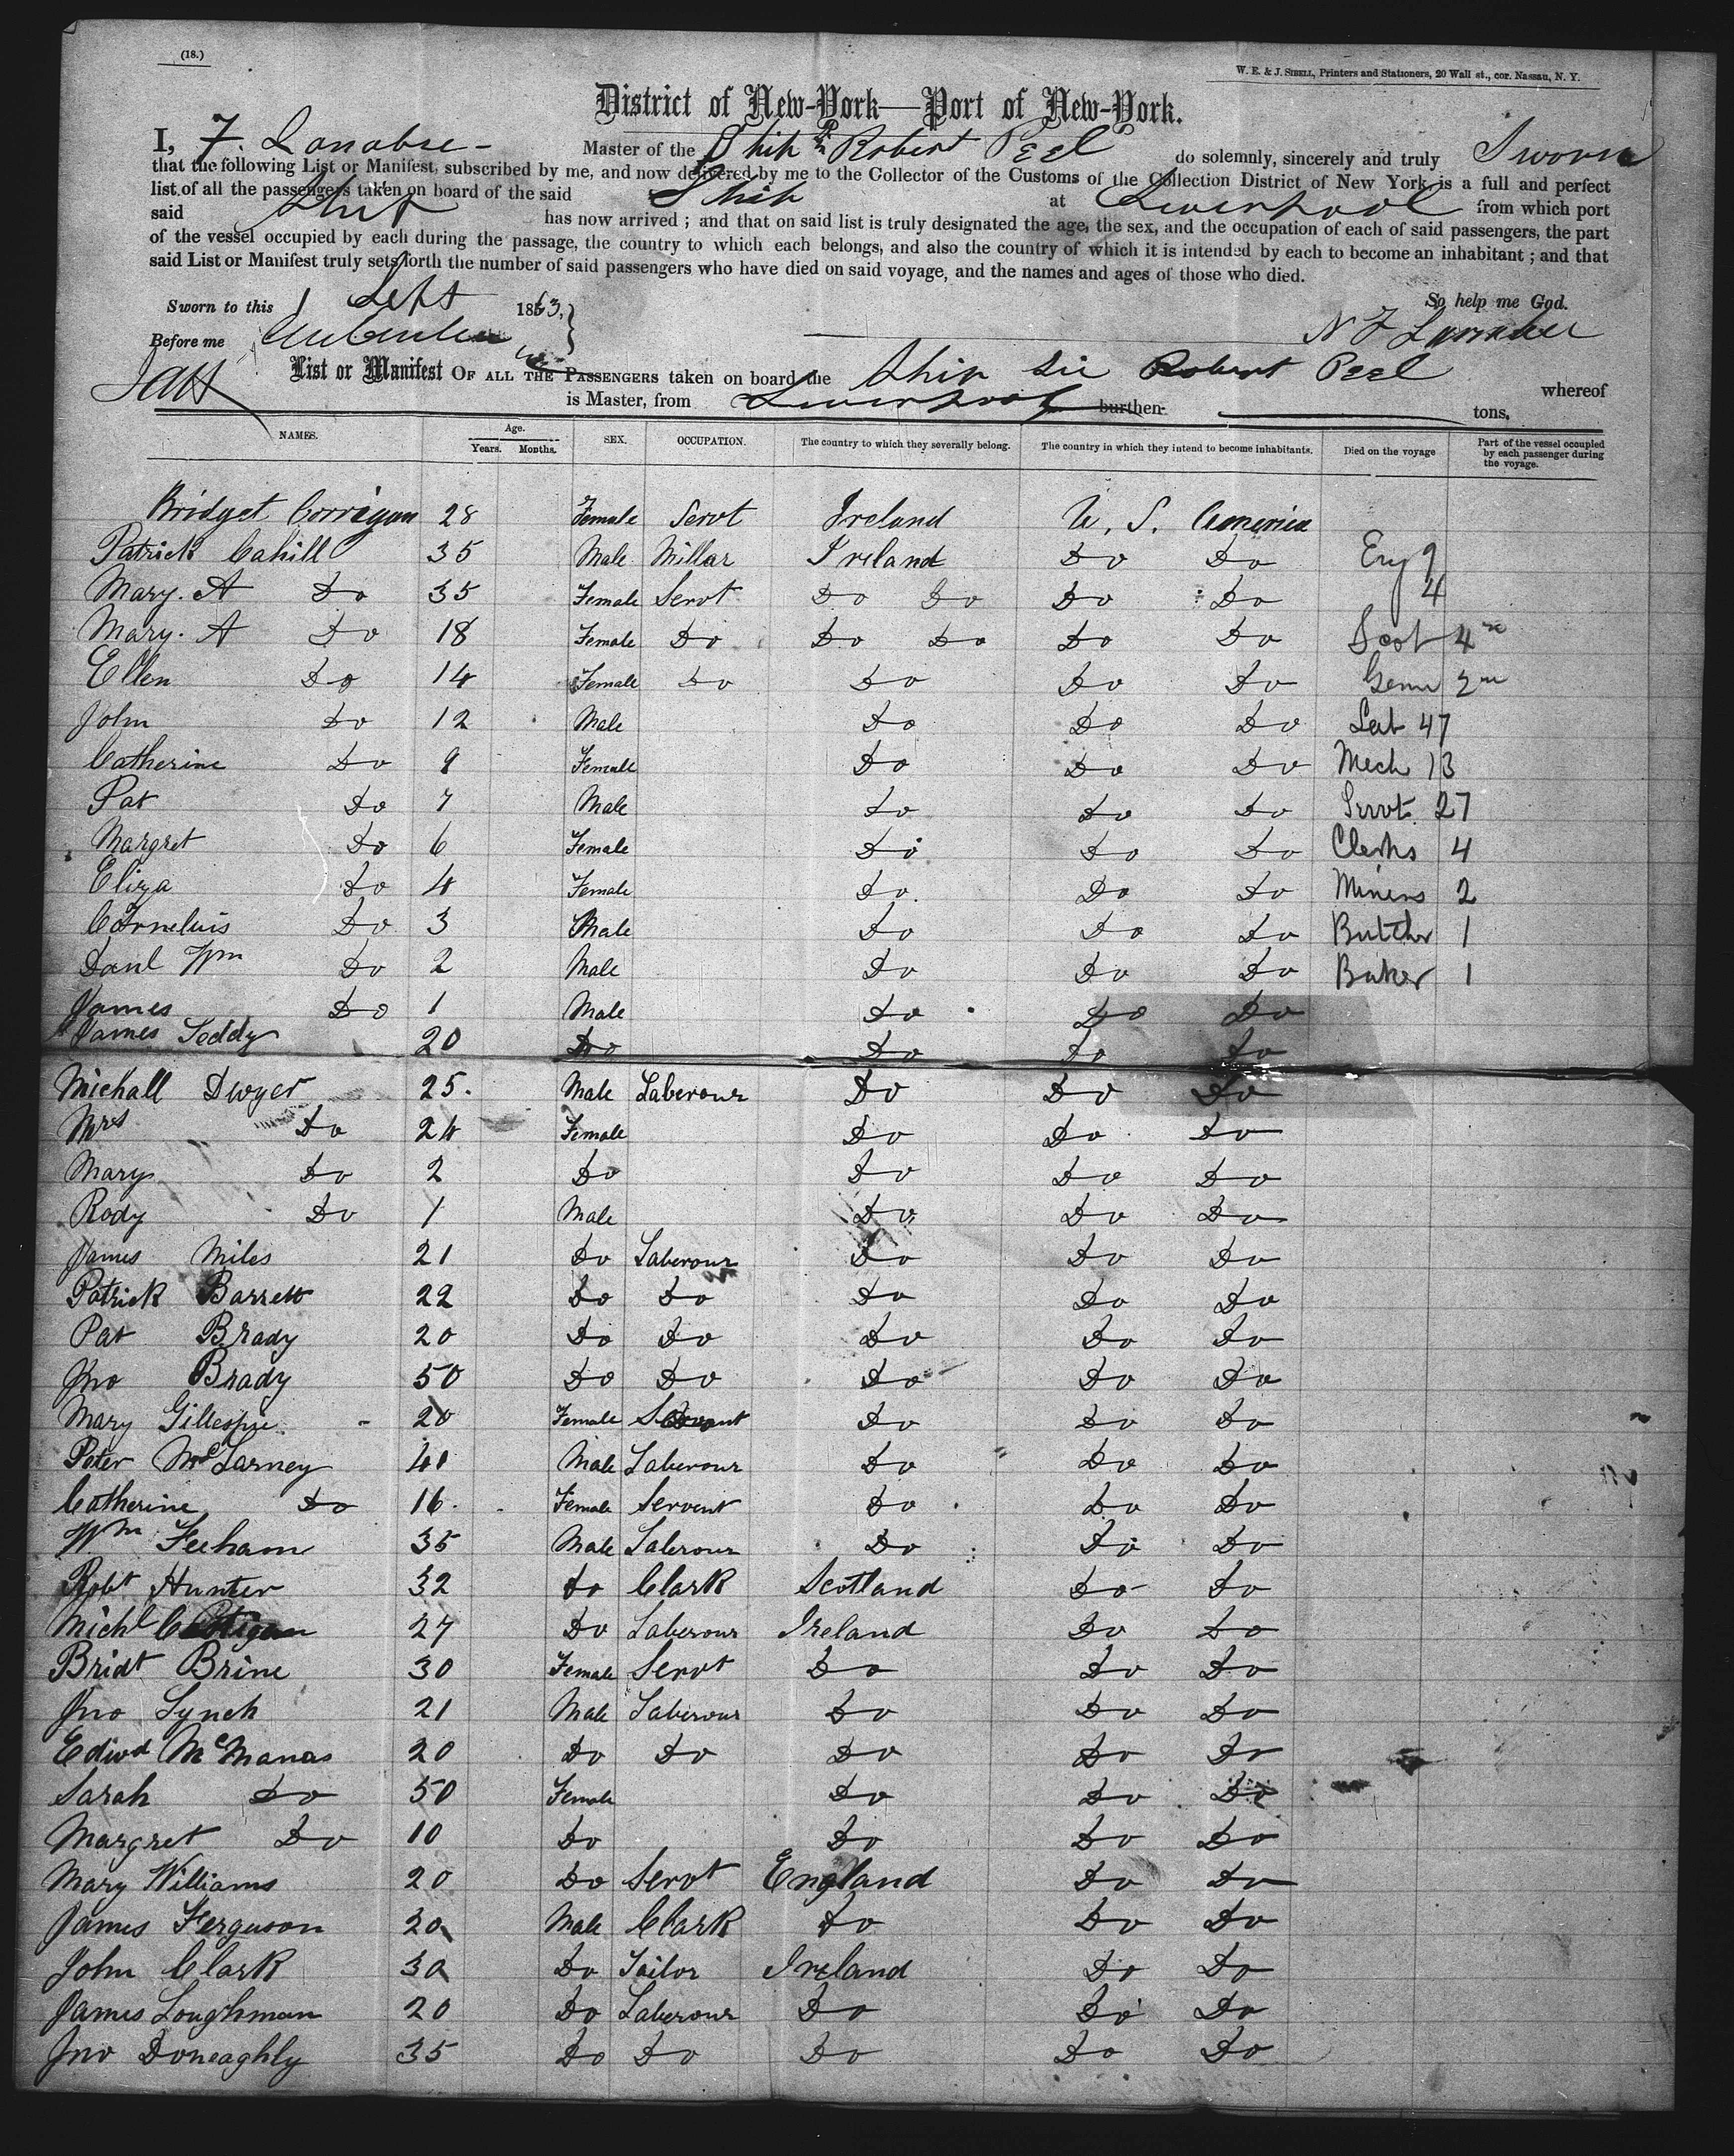 (18.)
W. E. & J. SIBELL, Printers and Stationers, 20 Wall st., cor. Nassau, N. Y.
District of New-York—Port of New-York.
I, Master of the Ship Sr Robert Peel do solemnly, sincerely and truly Swear
that the following List or Manifest, subscribed by me, and now delivered by me to the Collector of the Customs of the Collection District of New York, is a full and perfect
list of all the passengers taken on board of the said Ship at Liverpool from which port
said Ship has now arrived ; and that on said list is truly designated the age, the sex, and the occupation of each of said passengers, the part
of the vessel occupied by each during the passage, the country to which each belongs, and also the country of which it is intended by each to become an inhabitant ; and that
said List or Manifest truly sets forth the number of said passengers who have died on said voyage, and the names and ages of those who died.
Sworn to this 1 Sept 1863, So help me God.
Before me
List or Manifest OF ALL THE PASSENGERS taken on board the Ship Sir Robert Peel whereof
is Master, from Liverpool burthen tons.
NAMES. Age. Years. Months. SEX. OCCUPATION. The country to which they severally belong. The country in which they intend to become inhabitants. Died on the voyage Part of the vessel occupied by each passenger during the voyage.
Bridget Corrigan 28 Female Servt Ireland U. S. America
Patrick Cahill 35 Male Millar Ireland Do Do Eng 9
Mary. A Do 35 Female Servt Do Do Do Do 4
Mary. A Do 18 Female Do Do Do Do Do Scot 4
Ellen Do 14 Female Do Do Do Do Germ 2
John Do 12 Male Do Do Do Lab 47
Catherine Do 9 Female Do Do Do Mech 13
Pat Do 7 Male Do Do Do Servt. 27
Margret Do 6 Female Do Do Do Clerks 4
Eliza Do 4 Female Do Do Do Miners 2
Cornelius Do 3 Male Do Do Do Butcher 1
Danl Wm Do 2 Male Do Do Do Baker 1
James Do 1 Male Do Do Do
James Leddy 20 Do Do Do Do
Michall Dwyer 25. Male Laberour Do Do Do
Mrs Do 24 Female Do Do Do
Mary Do 2 Do Do Do Do
Rody Do 1 Male Do Do Do
James Miles 21 Do Laberour Do Do Do
Patrick Barrett 22 Do Do Do Do Do
Pat Brady 20 Do Do Do Do Do
Jno Brady 50 Do Do Do Do Do
Mary Gillespie 20 Female Servant Do Do Do
Peter McLarney 40 Male Laberour Do Do Do
Catherine Do 16. Female Servent Do Do Do
Wm Feeham 35 Male Laberour Do Do Do
Robt Hunter 32 Do Clark Scotland Do Do
Michl 27 Do Laberour Ireland Do Do
Bridt Brine 30 Female Servt Do Do Do
Jno Lynch 21 Male Laberour Do Do Do
Edwd McManas 20 Do Do Do Do Do
Sarah Do 50 Female Do Do Do
Margret Do 10 Do Do Do Do
Mary Williams 20 Do Servt England Do Do
James Ferguson 20 Male Clark Do Do Do
John Clark 30 Do Tailor Ireland Do Do
James Loughman 20 Do Laberour Do Do Do
Jno Doneaghly 35 Do Do Do Do Do